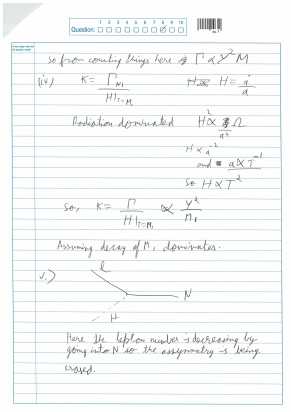 Question: 1 2 3 4 5 6 7 8 9 10
so from counting things here is Γ ∝ Y² M
(iv) K = Γ_M₁ / H|_T=M₁ H = ȧ/a
Radiation dominated H² ∝ Ω/a⁴
H ∝ a⁻²
and a ∝ T⁻¹
so H ∝ T²
so, K = Γ / H|_T=M₁ ∝ Y²/M₁
Assuming decay of M₁ dominates.
v.)
l
N
H
Here the lepton number is decreasing by
going into N so the assymmetry is being
erased.